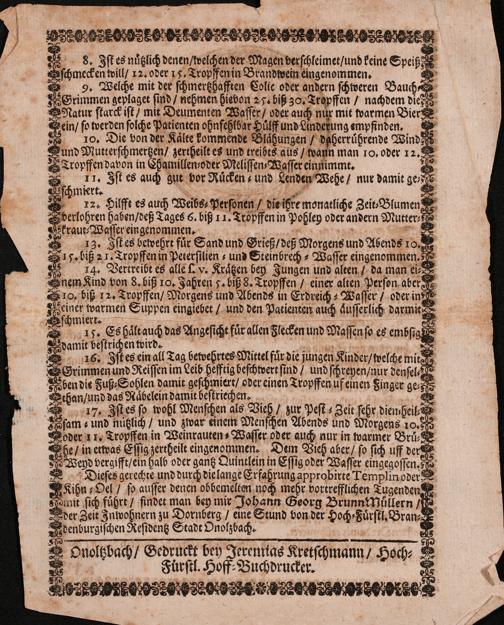 8. Ist es nützlich denen/welchen der Magen verschleimet/und keine Speiß
schmecken will/ 12. oder 15. Tropffen in Brandwein eingenommen.
9. Welche mit der schmertzhafften Colic oder andern schweren Bauch-
Grimmen geplaget sind/ nehmen hievon 25. biß 30. Tropffen/ nachdem die
Natur starck ist/ mit Deumenten Wasser/ oder auch nur mit warmen Bier
ein/ so werden solche Patienten ohnfehlbar Hülff und Linderung empfinden.
10. Die von der Kälte kommende Blähungen/ daherrührende Wind
und Mutterschmertzen/ zertheilt es und treibts aus/ wann man 10. oder 12.
Tropffen davon in Chamillen- oder Melissen-Wasser einnimmt.
11. Ist es auch gut vor Rücken- und Lenden Wehe/ nur damit ge-
schmiert.
12. Hilfft es auch Weibs-Personen/ die ihre monatliche Zeit-Blumen
verlohren haben/deß Tages 6. biß 11. Tropffen in Pohley oder andern Mutter-
kraut-Wasser eingenommen.
13. Ist es bewehrt für Sand und Grieß/deß Morgens und Abends 10.
15. biß 21. Tropffen in Petersilien- und Steinbrech-Wasser eingenommen.
14. Vertreibt es alle s. v. Krätzen bey Jungen und alten/ da man ei-
nem Kind von 8. biß 10. Jahren 5. biß 8. Tropffen/ einer alten Person aber
10. biß 12. Tropffen/ Morgens und Abends in Erdreich-Wasser/ oder in
einer warmen Suppen eingiebet/ und den Patienten auch äusserlich darmit
schmiert.
15. Es hält auch das Angesicht für allen Flecken und Massen so es embsig
damit bestrichen wird.
16. Ist es ein all Tag bewehrtes Mittel für die jungen Kinder/ welche mit
Grimmen und Reissen im Leib hefftig beschwert sind/ und schreyen/nur densel-
ben die Fuß-Sohlen damit geschmiert/oder einen Tropffen uf einen Finger ge-
than/und das Näbelein damit bestrichen.
17. Ist es so wohl Menschen als Vieh/ zur Pest-Zeit sehr dienheil-
sam- und nützlich/ und zwar einem Menschen Abends und Morgens 10.
oder 11. Tropffen in Weinrauten-Wasser oder auch nur in warmer Brü-
he/ in etwas Essig zertheilt eingenommen. Dem Vieh aber/ so sich uff der
Weyd vergifft/ein halb oder gantz Quintlein in Essig oder Wasser eingegossen.
Dieses gerechte und durch die lange Erfahrung approbirte Templin oder
Kihn-Oel/ so ausser denen obbemelten noch mehr vortrefflichen Tugenden
mit sich führt/ findet man bey mir Johann Georg BrunnMüllern/
der Zeit Inwohnern zu Dornberg/ eine Stund von der Hoch-Fürstl. Bran-
denburgischen Residentz Stadt Onoltzbach.
Onoltzbach/ Gedruckt bey Jeremias Kretschmann/ Hoch-
Fürstl. Hoff-Buchdrucker.